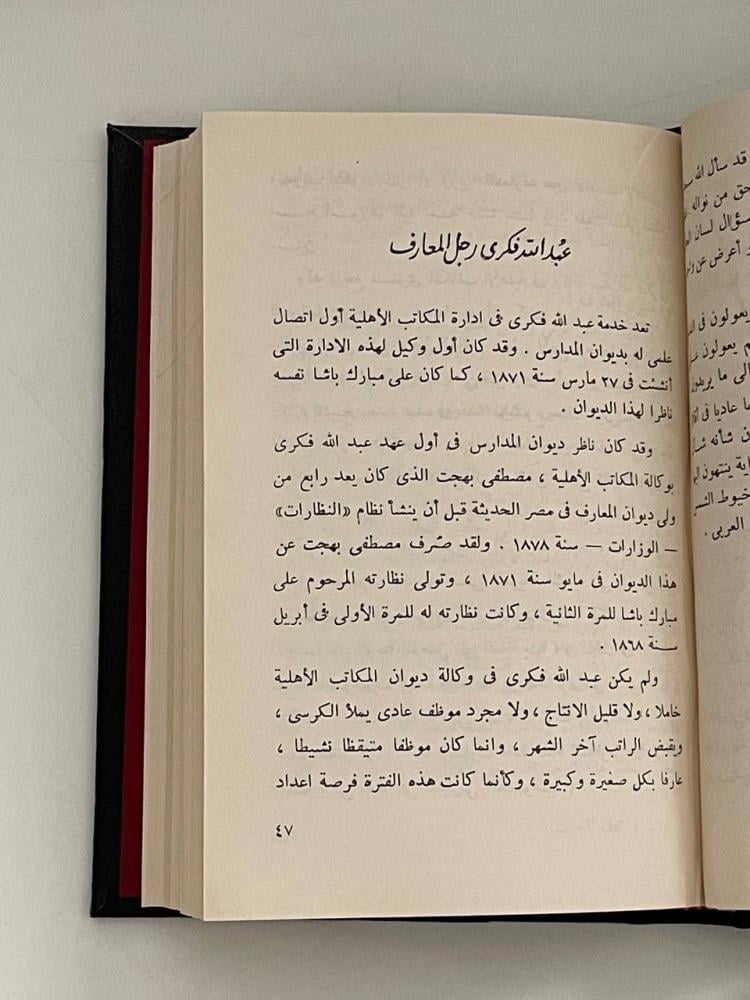 عبد الله فكرى رجل المعارف
تعد خدمة عبد الله فكرى فى ادارة المكاتب الأهلية أول اتصال
علمى له بديوان المدارس . وقد كان أول وكيل لهذه الادارة التى
أنشئت فى ٢٧ مارس سنة ١٨٧١ ، كما كان على مبارك باشا نفسه
ناظرا لهذا الديوان .
وقد كان ناظر ديوان المدارس فى أول عهد عبد الله فكرى
بوكالة المكاتب الأهلية ، مصطفى بهجت الذى كان يعد رابع من
ولى ديوان المعارف فى مصر الحديثة قبل أن ينشأ نظام «النظارات»
— الوزارات — سنة ١٨٧٨ . ولقد صُرف مصطفى بهجت عن
هذا الديوان فى مايو سنة ١٨٧١ ، وتولى نظارته المرحوم على
مبارك باشا للمرة الثانية ، وكانت نظارته له للمرة الأولى فى أبريل
سنة ١٨٦٨ .
ولم يكن عبد الله فكرى فى وكالة ديوان المكاتب الأهلية
خاملا ، ولا قليل الانتاج ، ولا مجرد موظف عادى يملأ الكرسى ،
ويقبض الراتب آخر الشهر ، وانما كان موظفا متيقظا نشيطا ،
عارفا بكل صغيرة وكبيرة ، وكأنما كانت هذه الفترة فرصة اعداد
٤٧
قد سأل الله
حق من نواله
سؤال لسان
و أعرض عن
يعولون فى
م يعولون
الى ما يريدون
ا عاديا فى
ن شأنه
اية ينتهون
خيوط الشمس
العربى .